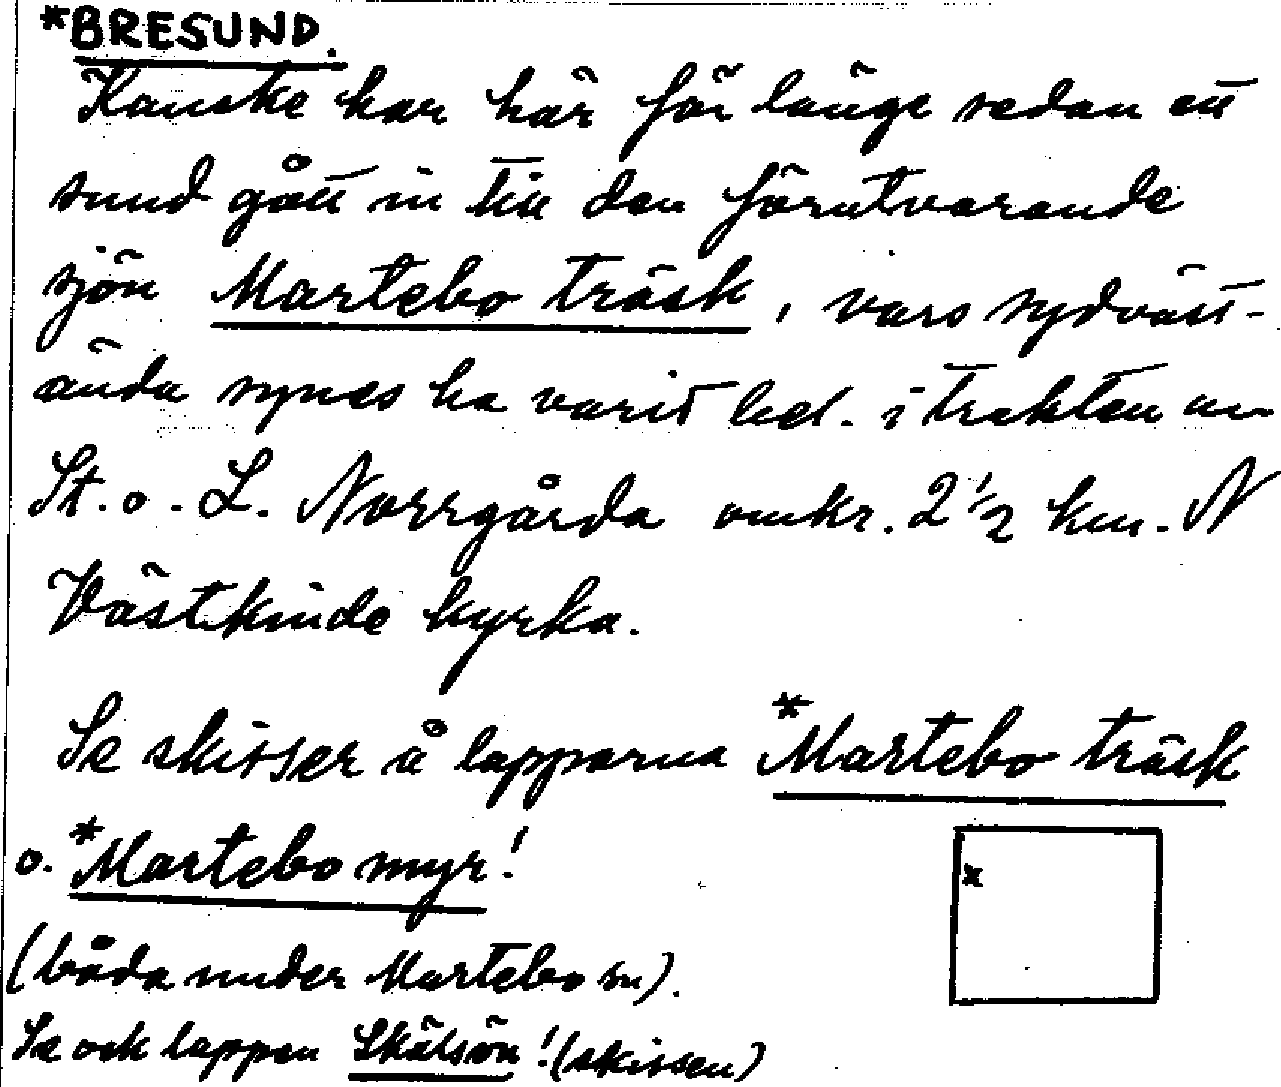 *BRESUND.
Kanske har här för länge sedan ett
sund gått in till den förutvarande
sjön Martebo träsk, vars sydväst-
ända synes ha varit bel. i trakten av
St. o. L. Norrgårda omkr. 2 1/2 km. N
Västkinde kyrka.
Se skisser å lapparna *Martebo träsk
o. *Martebo myr!
x
(båda under Martebo sn).
Se ock lappen Skälsön! (skissen)